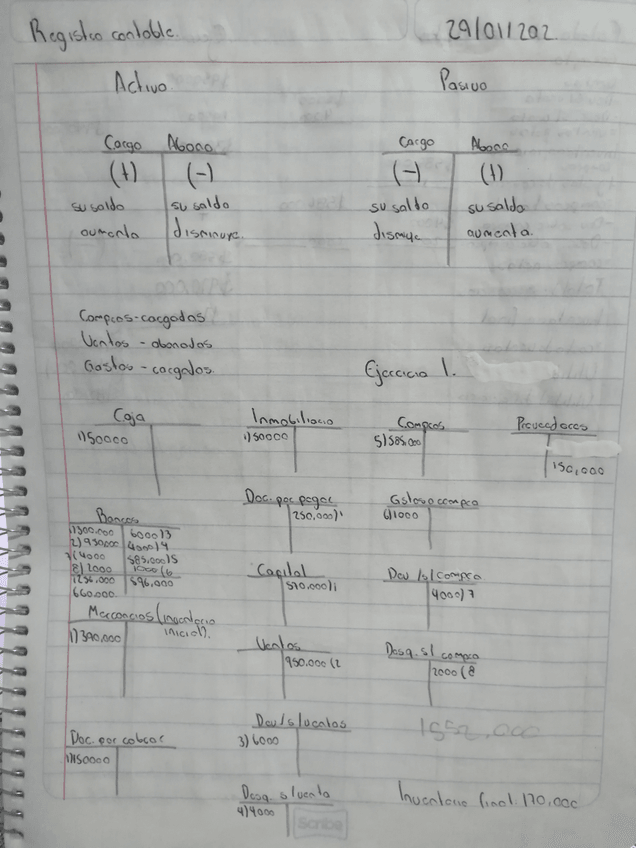 Registro contable. 29/01/202
Activo. Pasivo
Cargo Abono Cargo Abono
(+) (-) (-) (+)
su saldo su saldo su saldo su saldo
aumenta disminuye. dismuye aumenta.
Compras-cargadas
Ventas - abonadas
Gastos - cargados. Ejercicio 1.
Caja Inmobiliario Compras Proveedores
1)50000 1)50000 5)585,000
150,000
Doc. por pagar Gstos s compra
250,000)1 6)1000
Bancos
1)300.000 6000)3
2)950000 4000)4
7)4000 585,000)5
8)2000 1000(6
1256.000 596,000
660.000.
Capital Dev /s/compra
590,000)1 4000)7
Mercancias/inventario
inicial).
1)390,000
Ventas Desq. s/ compra
950.000(2 2000(8
Dev/s/ventas 1552,000
Doc. por cobrar 3)6000
1)150000
Desq. s/venta Inventario final 170,000
4)4000
Scribe